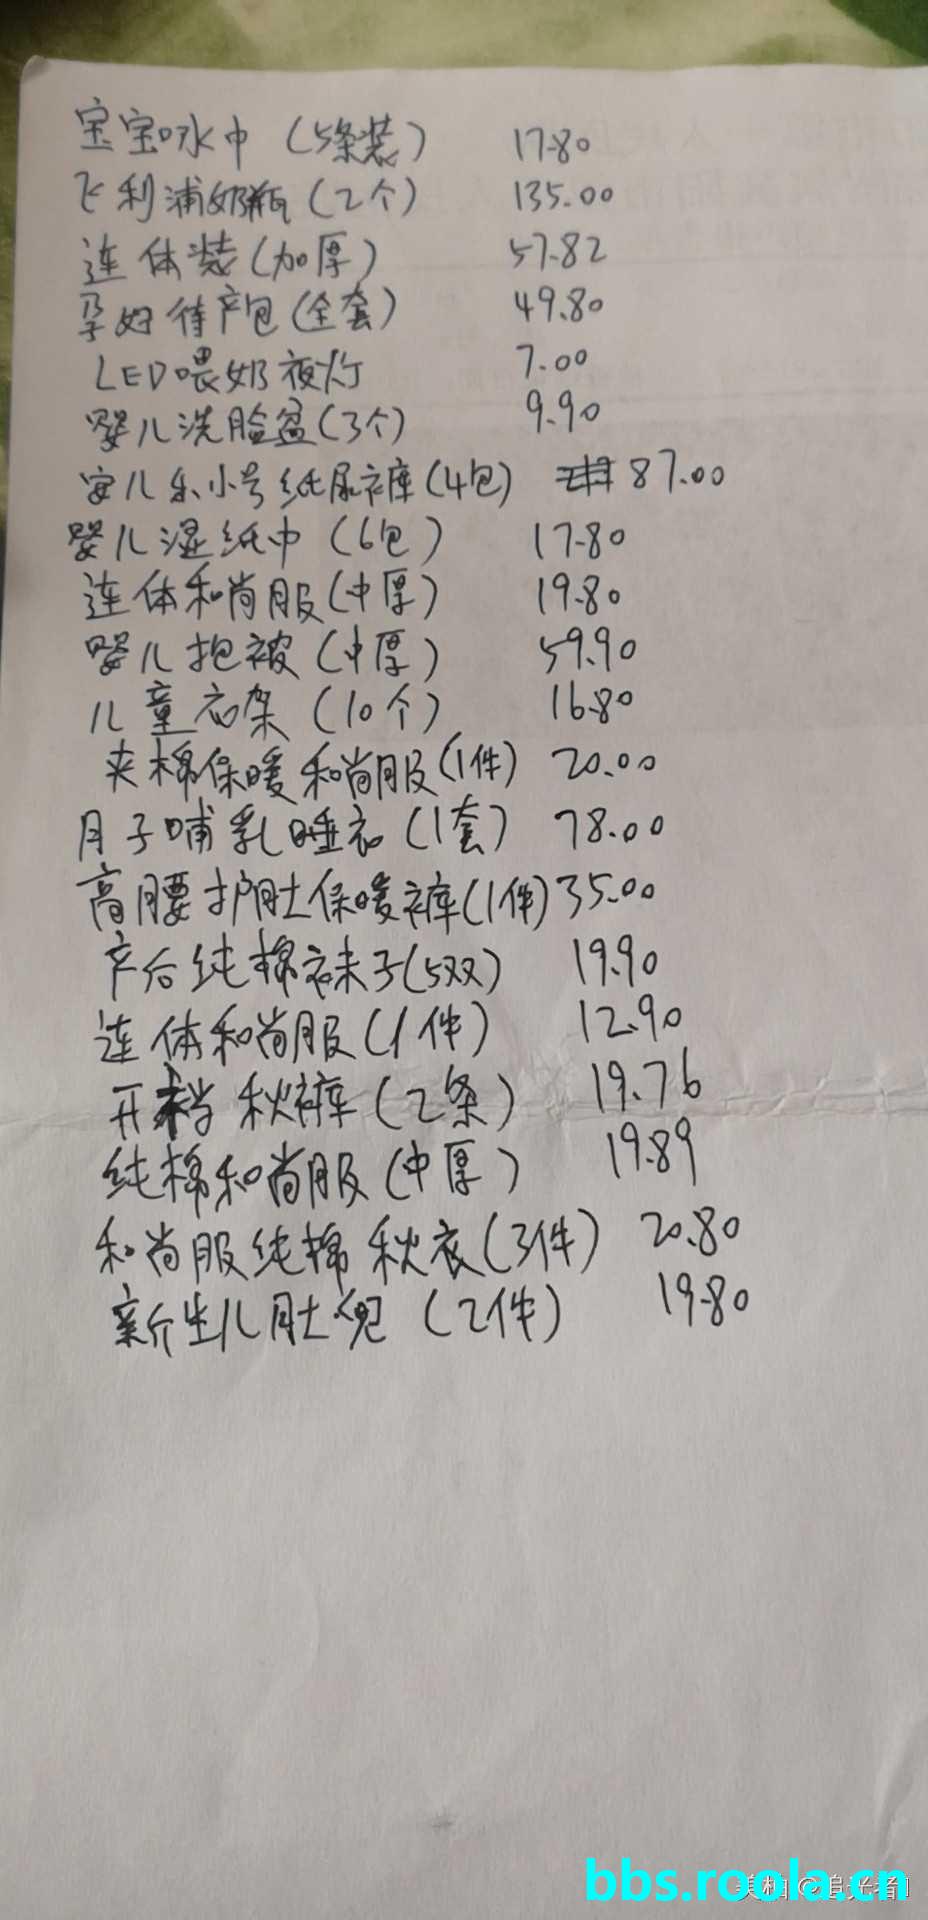 宝宝口水巾（5条装） 17.80
飞利浦奶瓶（2个） 135.00
连体装（加厚） 57.82
孕妇待产包（全套） 49.80
LED喂奶夜灯 7.00
婴儿洗脸盆（3个） 9.90
安儿乐小号纸尿裤（4包） 87.00
婴儿湿纸巾（6包） 17.80
连体和尚服（中厚） 19.80
婴儿抱被（中厚） 59.90
儿童衣架（10个） 16.80
夹棉保暖和尚服（1件） 20.00
月子哺乳睡衣（1套） 78.00
高腰护肚保暖裤（1件） 35.00
产后纯棉袜子（5双） 19.90
连体和尚服（1件） 12.90
开裆秋裤（2条） 19.76
纯棉和尚服（中厚） 19.89
和尚服纯棉秋衣（3件） 20.80
新生儿肚兜（2件） 19.80
bbs.roola.cn